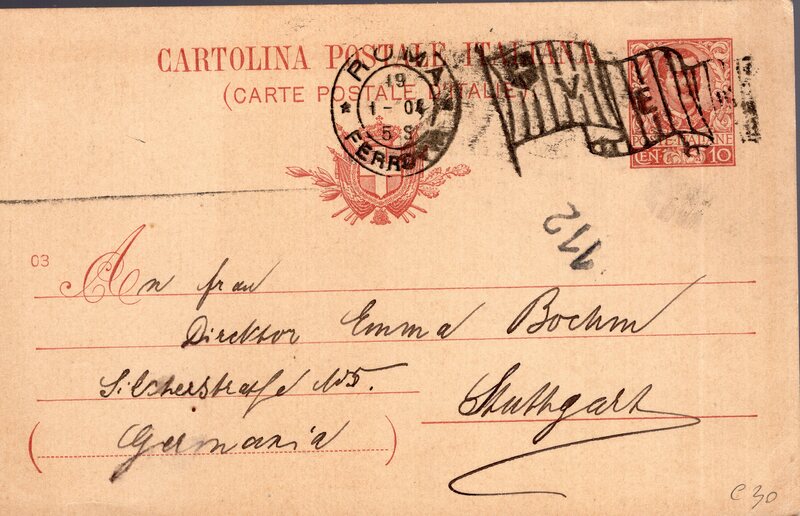 CARTOLINA POSTALE ITALIANA
(CARTE POSTALE D'ITALIE)
ROMA
19
1-04
5 S
FERROVIA
V E
POSTE ITALIANE
CEN 10
112
03
An Frau
Direktor Emma Boehm
Silcherstraße No 5.
Stuttgart
(Germania)
C 30